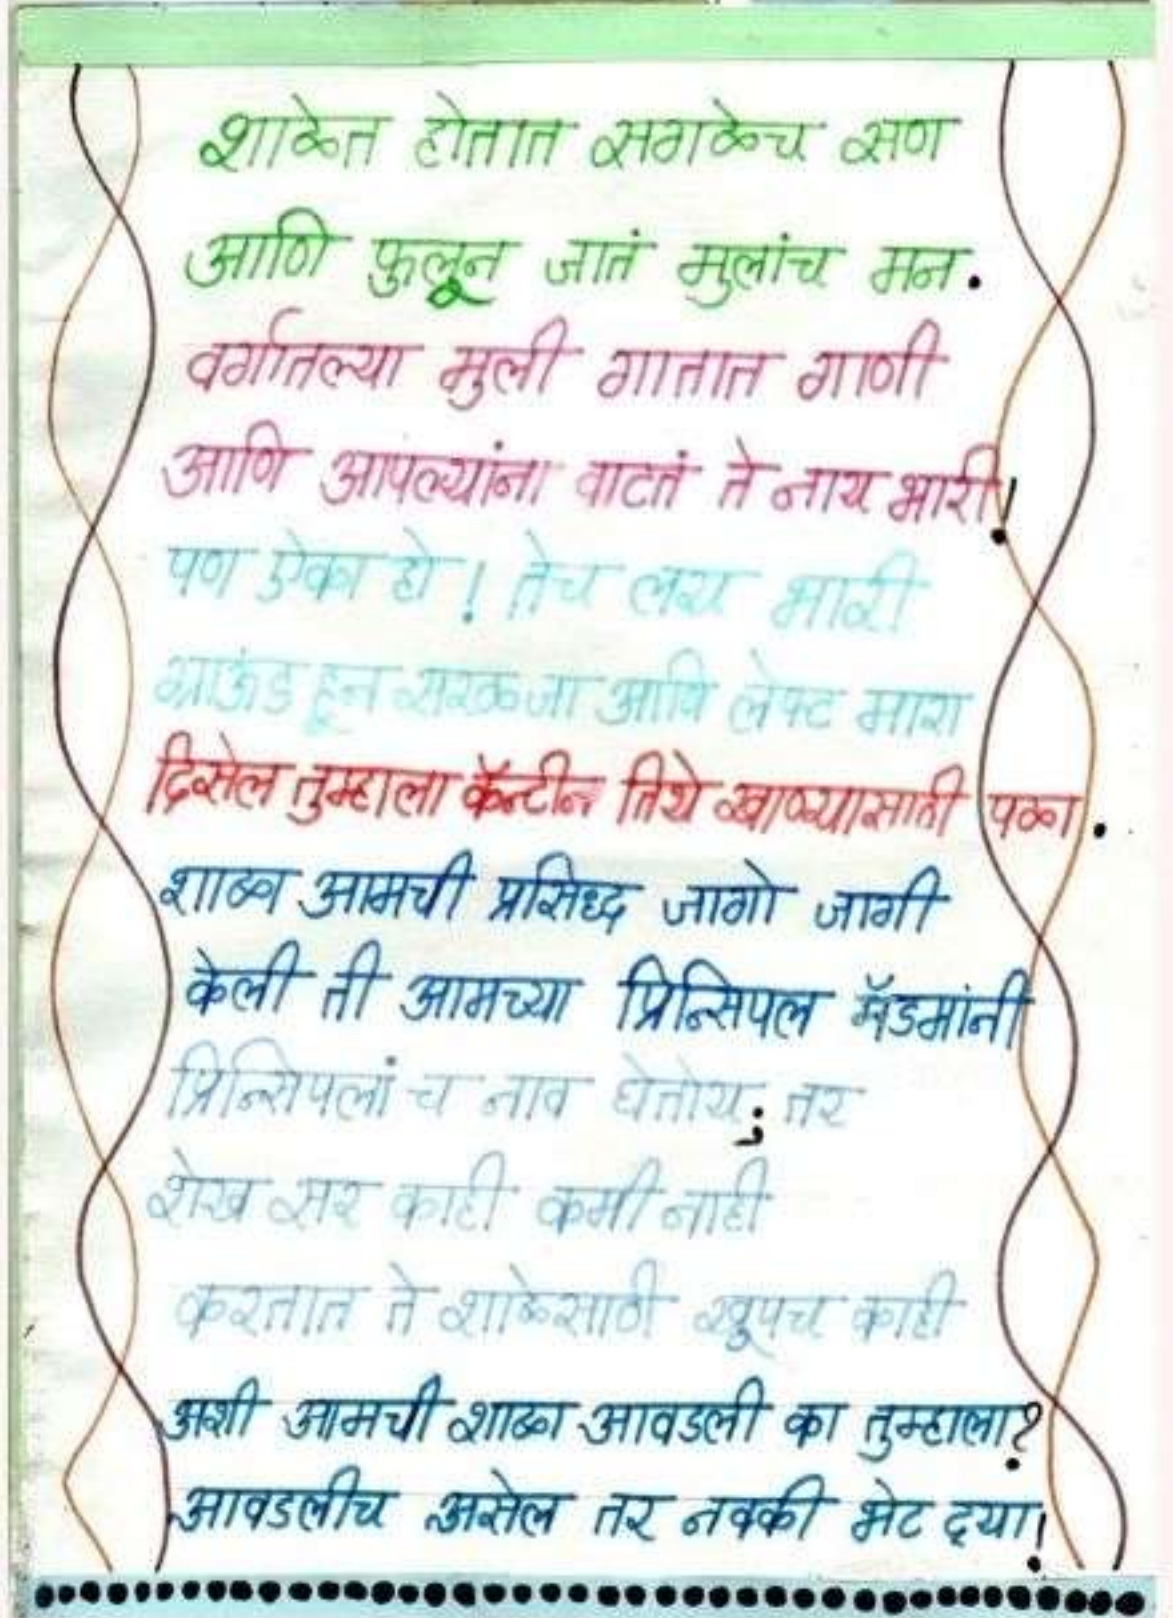 शाळेत होतात सगळेच सण
आणि फुलून जातं मुलांच मन.
वर्गातल्या मुली गातात गाणी
आणि आपल्यांना वाटतं ते नाय भारी!
पण ऐका हो! तेच लय भारी
ग्राऊंड हून सरळ जा आणि लेफ्ट मारा
दिसेल तुम्हाला कॅन्टीन तिथे खाण्यासाठी पळा.
शाळा आमची प्रसिध्द जागो जागी
केली ती आमच्या प्रिन्सिपल मॅडमांनी
प्रिन्सिपलां च नाव घेतोय; तर
शेख सर काही कमी नाही
करतात ते शाळेसाठी खूपच काही
अशी आमची शाळा आवडली का तुम्हाला?
आवडलीच असेल तर नक्की भेट द्या!